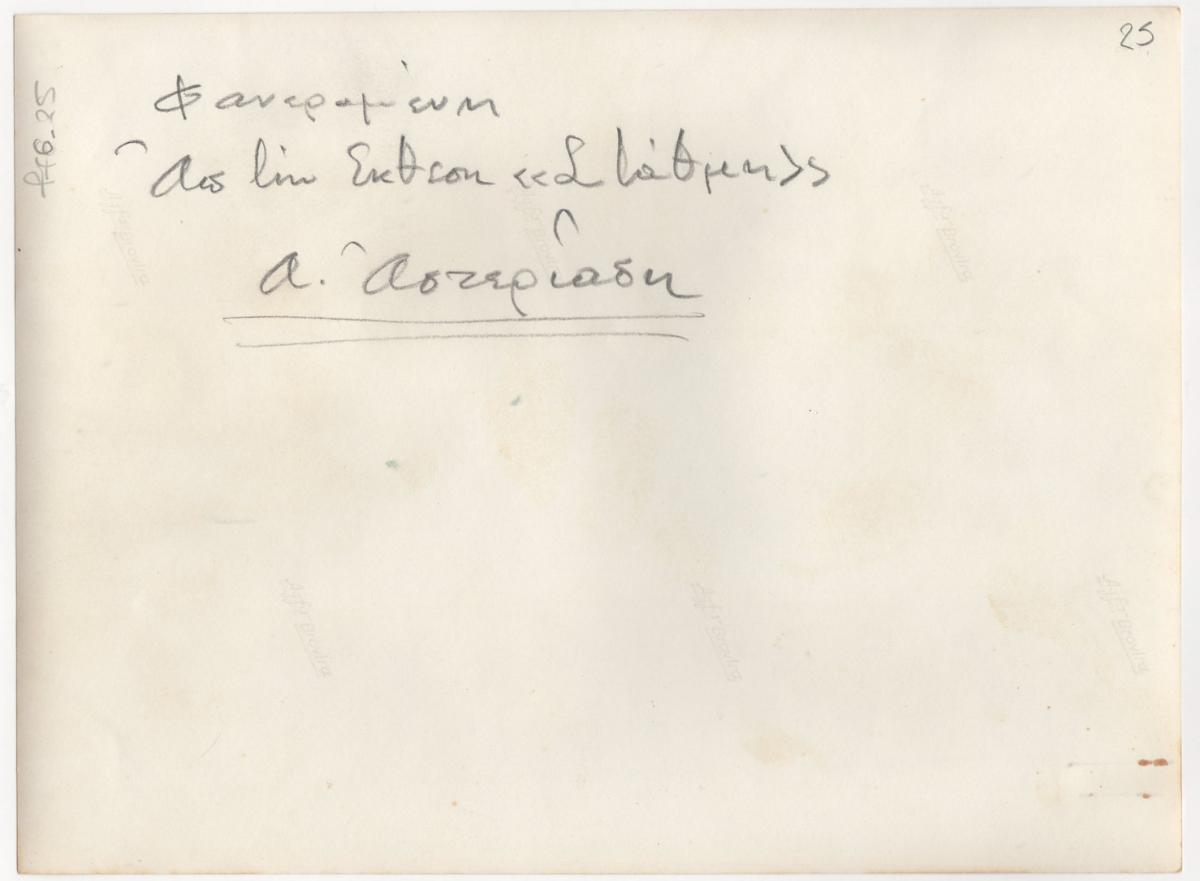 25
φ46_25
Φανερωμένη
Από τὴν Ἔκθεση «Στάθμη»
Α. Ἀστεριάδη
Agfa Brovira
Agfa Brovira
Agfa Brovira
Agfa Brovira
Agfa Brovira
Agfa Brovira